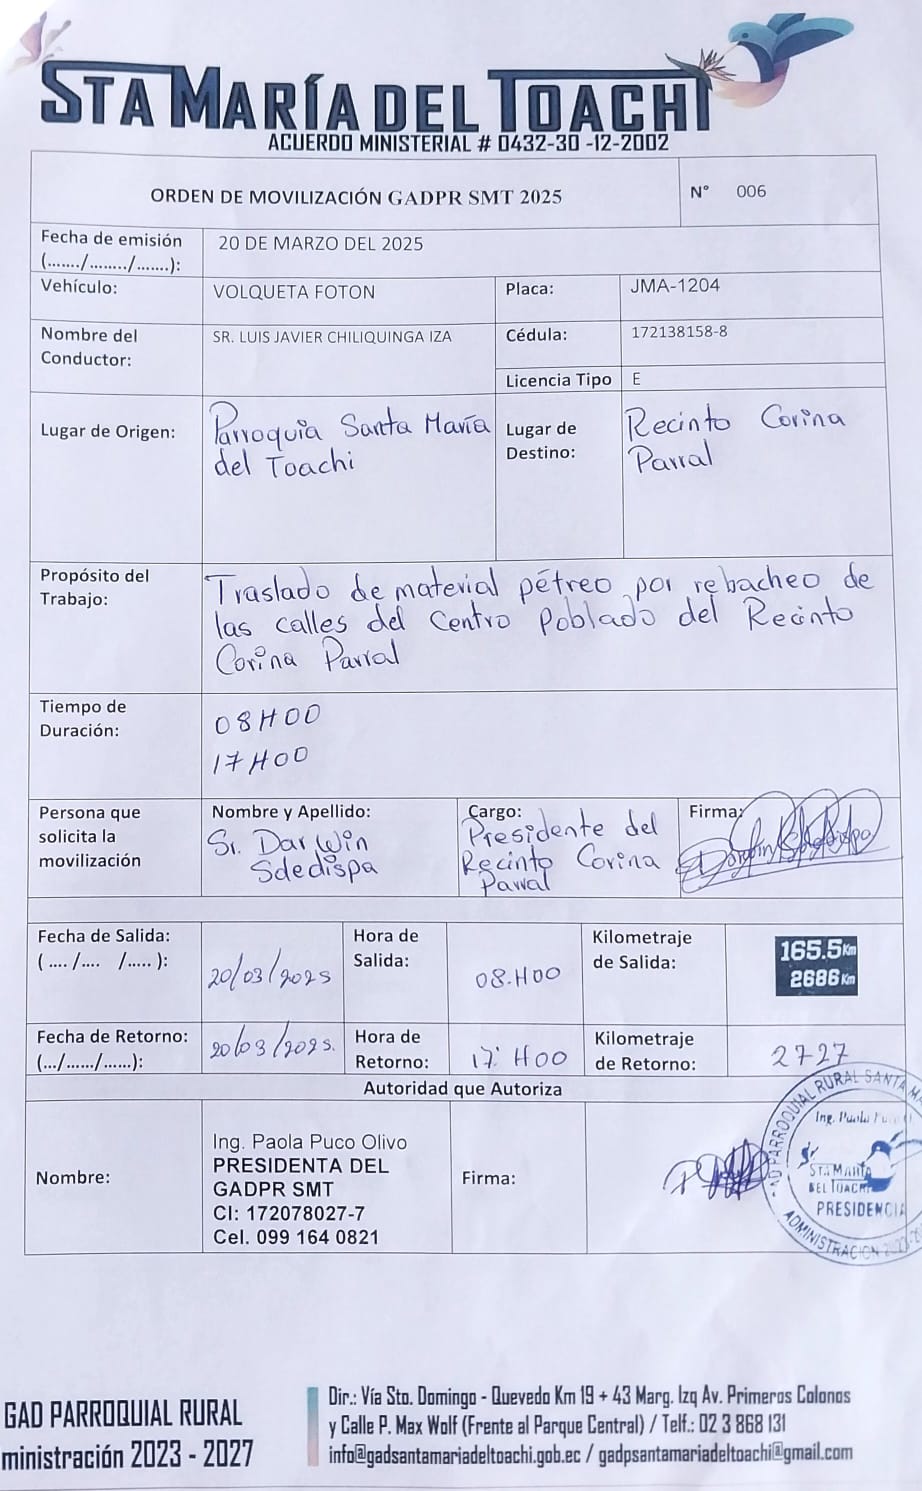 STA MARÍA DEL TOACHI
ACUERDO MINISTERIAL # 0432-30 -12-2002
ORDEN DE MOVILIZACIÓN GADPR SMT 2025
N° 006
Fecha de emisión
(......./......../.......):
20 DE MARZO DEL 2025
Vehículo:
VOLQUETA FOTON
Placa:
JMA-1204
Nombre del
Conductor:
SR. LUIS JAVIER CHILIQUINGA IZA
Cédula:
172138158-8
Licencia Tipo
E
Lugar de Origen:
Parroquia Santa María
del Toachi
Lugar de
Destino:
Recinto Corina
Parral
Propósito del
Trabajo:
Traslado de material pétreo por rebacheo de
las calles del Centro Poblado del Recinto
Corina Parral
Tiempo de
Duración:
08H00
17H00
Persona que
solicita la
movilización
Nombre y Apellido:
Sr. Darwin
Sdedispa
Cargo:
Presidente del
Recinto Corina
Parral
Firma:
Fecha de Salida:
( .... /.... /..... ):
20/03/2025
Hora de
Salida:
08.H00
Kilometraje
de Salida:
165.5Km
2686Km
Fecha de Retorno:
(.../....../......):
20/03/2025.
Hora de
Retorno:
17: H00
Kilometraje
de Retorno:
2727
Autoridad que Autoriza
Nombre:
Ing. Paola Puco Olivo
PRESIDENTA DEL
GADPR SMT
CI: 172078027-7
Cel. 099 164 0821
Firma:
PARROQUIAL RURAL SANTA MA
Ing. Paola
STA MARÍA
DEL TOACHI
PRESIDENCIA
ADMINISTRACION
GAD PARROQUIAL RURAL
ministración 2023 - 2027
Dir.: Vía Sto. Domingo - Quevedo Km 19 + 43 Marg. Izq Av. Primeros Colonos
y Calle P. Max Wolf (Frente al Parque Central) / Telf.: 02 3 868 131
info@gadsantamariadeltoachi.gob.ec / gadpsantamariadeltoachi@gmail.com